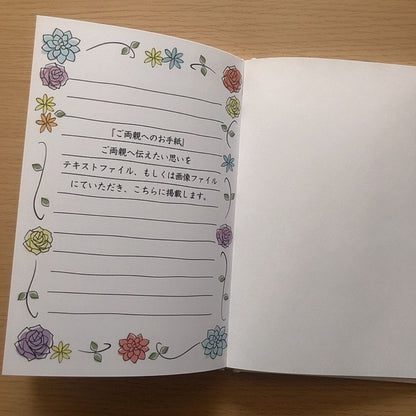 『ご両親へのお手紙』
ご両親へ伝えたい思いを
テキストファイル、もしくは画像ファイル
にていただき、こちらに掲載します。